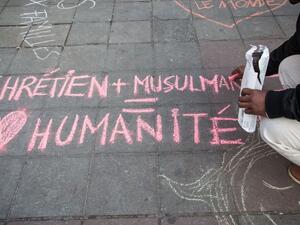 LE MONDE
CHRÉTIEN + MUSULMAN
=
HUMANITÉ